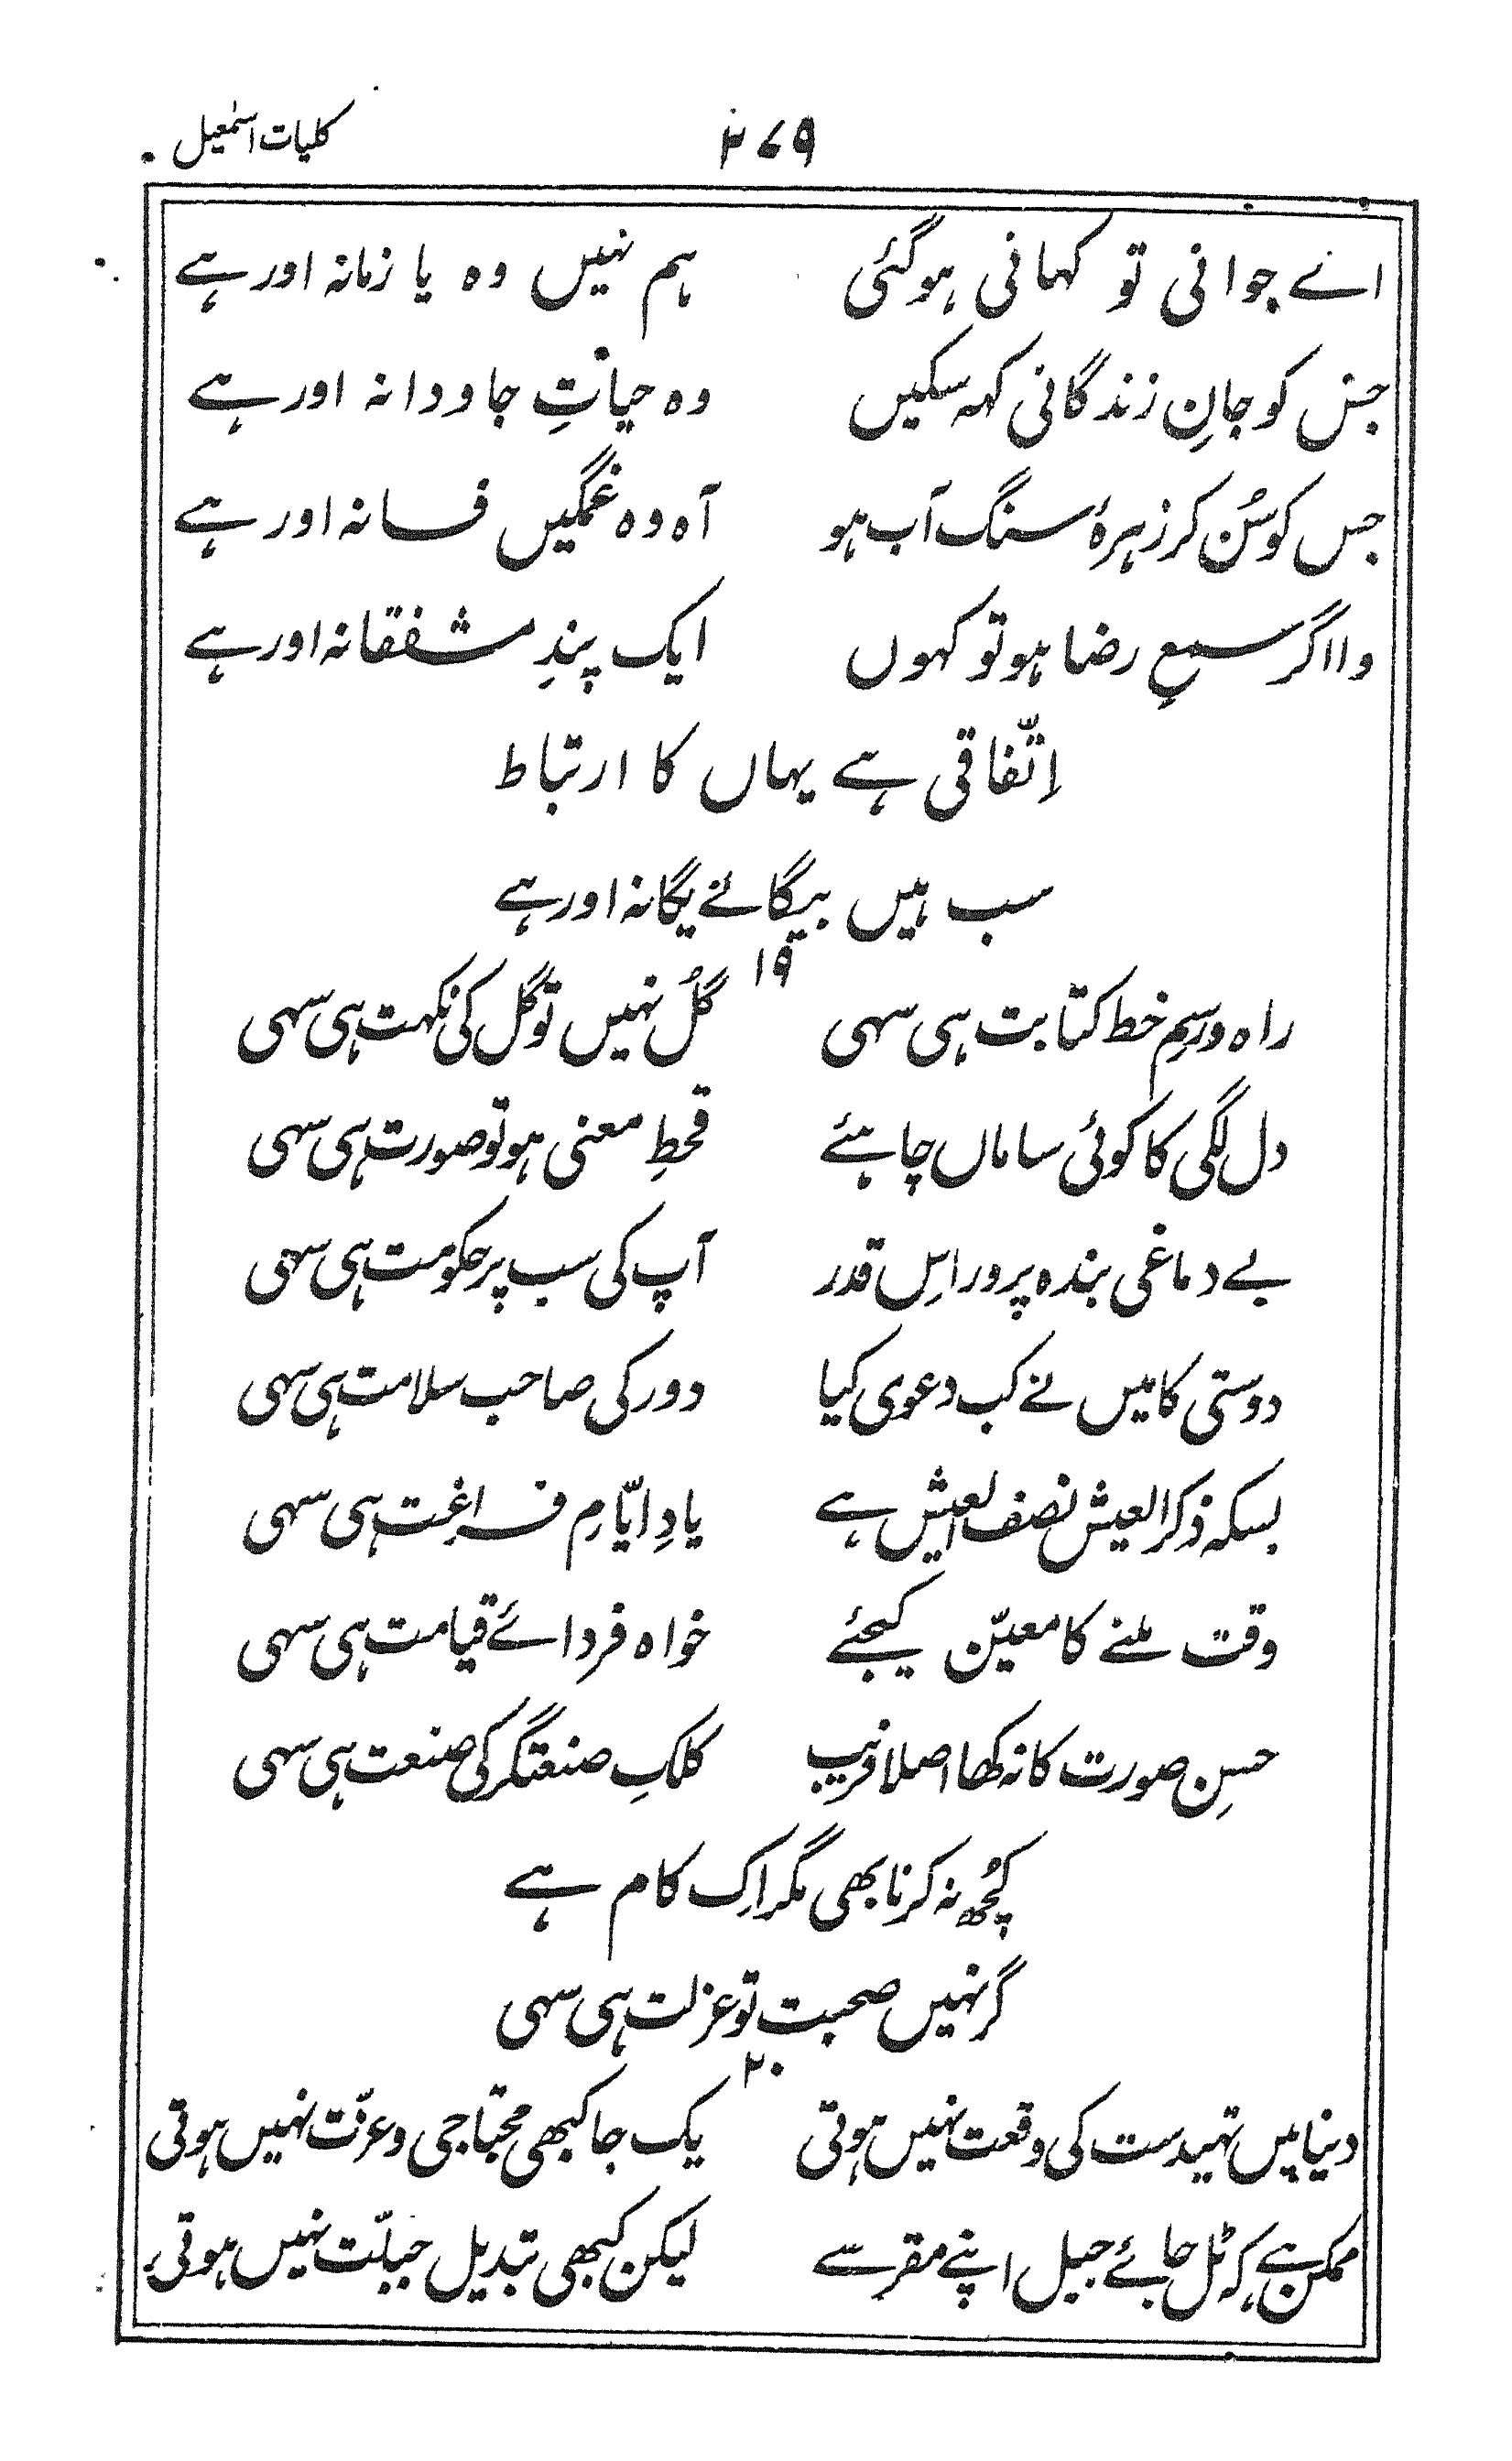 ۲۷۹ کلیات اسمٰعیل
اے جوانی تو کہانی ہوگئی ہم نہیں وہ یا زمانہ اور ہے
جس کو جانِ زندگانی کہہ سکیں وہ حیاتِ جاودانہ اور ہے
جس کو سُن کر زہرۂ سنگ آب ہو آہ وہ غمگیں فسانہ اور ہے
وا اگر سمعِ رضا ہو تو کہوں ایک پندِ مشفقانہ اور ہے
اِتّفاقی ہے یہاں کا ارتباط
سب ہیں بیگانے یگانہ اور ہے
۱۹
راہ و رسمِ خط کتابت ہی سہی گُل نہیں تو گل کی نکہت ہی سہی
دل لگی کا کوئی ساماں چاہئے قحطِ معنی ہو تو صورت ہی سہی
بے دماغی بندہ پرور اس قدر آپ کی سب پر حکومت ہی سہی
دوستی کا میں نے کب دعوی کیا دور کی صاحب سلامت ہی سہی
بسکہ ذکر العیش نصف العیش ہے یادِ ایّامِ فراغت ہی سہی
وقت ملنے کا معیّن کیجئے خواہ فردائے قیامت ہی سہی
حسنِ صورت کا نہ کھا اصلا فریب کلکِ صنعتگر کی صنعت ہی سہی
کچُھ نہ کرنا بھی مگر اِک کام ہے
گر نہیں صحبت تو عزلت ہی سہی
۲۰
دنیا میں تہیدست کی وقعت نہیں ہوتی یک جا کبھی محتاجی و عزّت نہیں ہوتی
ممکن ہے کہ ٹل جائے جبل اپنے مقر سے لیکن کبھی تبدیل جبلّت نہیں ہوتی